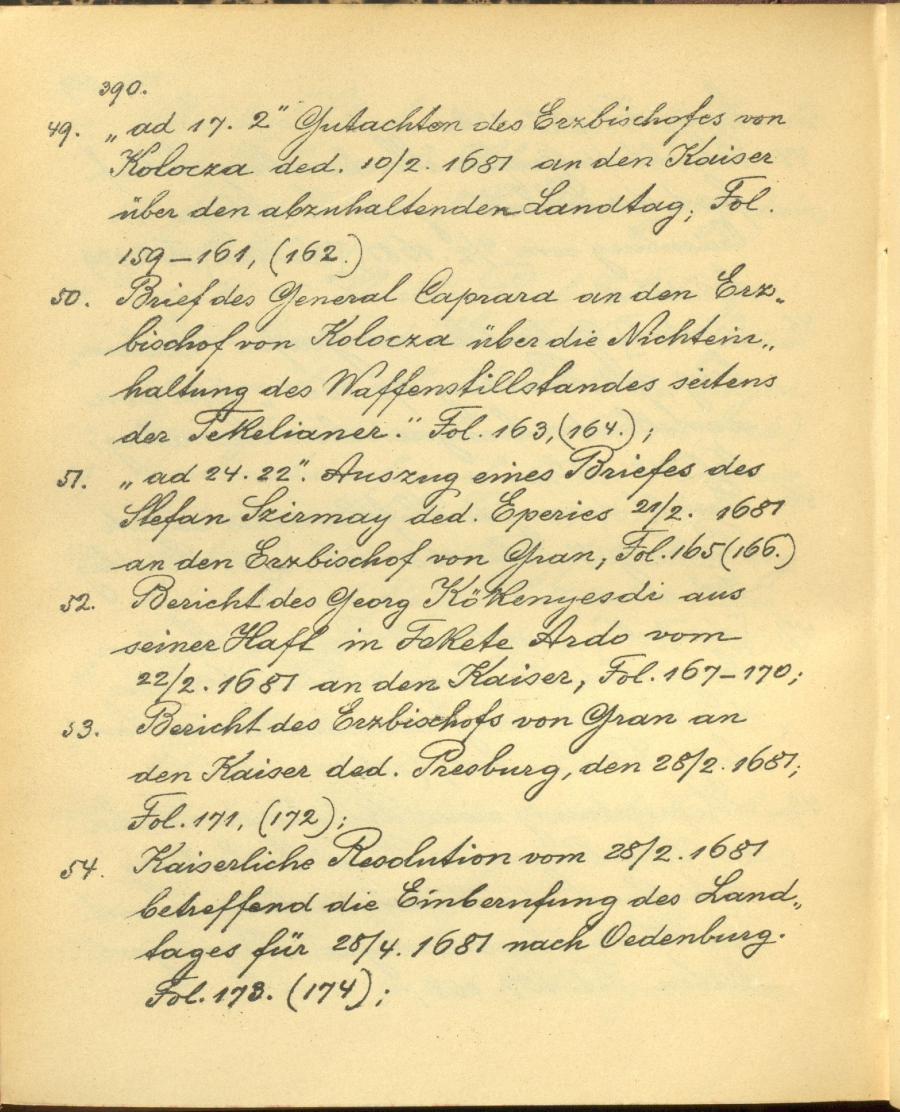 390.
49. „ad 17. 2" Gutachten des Erzbischofes von
Kolocza ded. 10/2. 1681 an den Kaiser
über den abzuhaltenden Landtag; Fol.
159–161, (162.)
50. Brief des General Caprara an den Erz„
bischof von Kolocza über die Nichtein„
haltung des Waffenstillstandes seitens
der Tekelianer." Fol. 163, (164.);
51. „ad 24. 22". Auszug eines Briefes des
Stefan Szirmay ded. Eperies 21/2. 1681
an den Erzbischof von Gran; Fol. 165 (166.)
52. Bericht des Georg Kökenyesdi aus
seiner Haft in Fekete Ardo vom
22/2. 1681 an den Kaiser, Fol. 167–170;
53. Bericht des Erzbischofs von Gran an
den Kaiser ded. Presburg, den 28/2. 1681;
Fol. 171, (172);
54. Kaiserliche Resolution vom 28/2. 1681
betreffend die Einberufung des Land„
tages für 28/4. 1681 nach Oedenburg.
Fol. 173. (174);